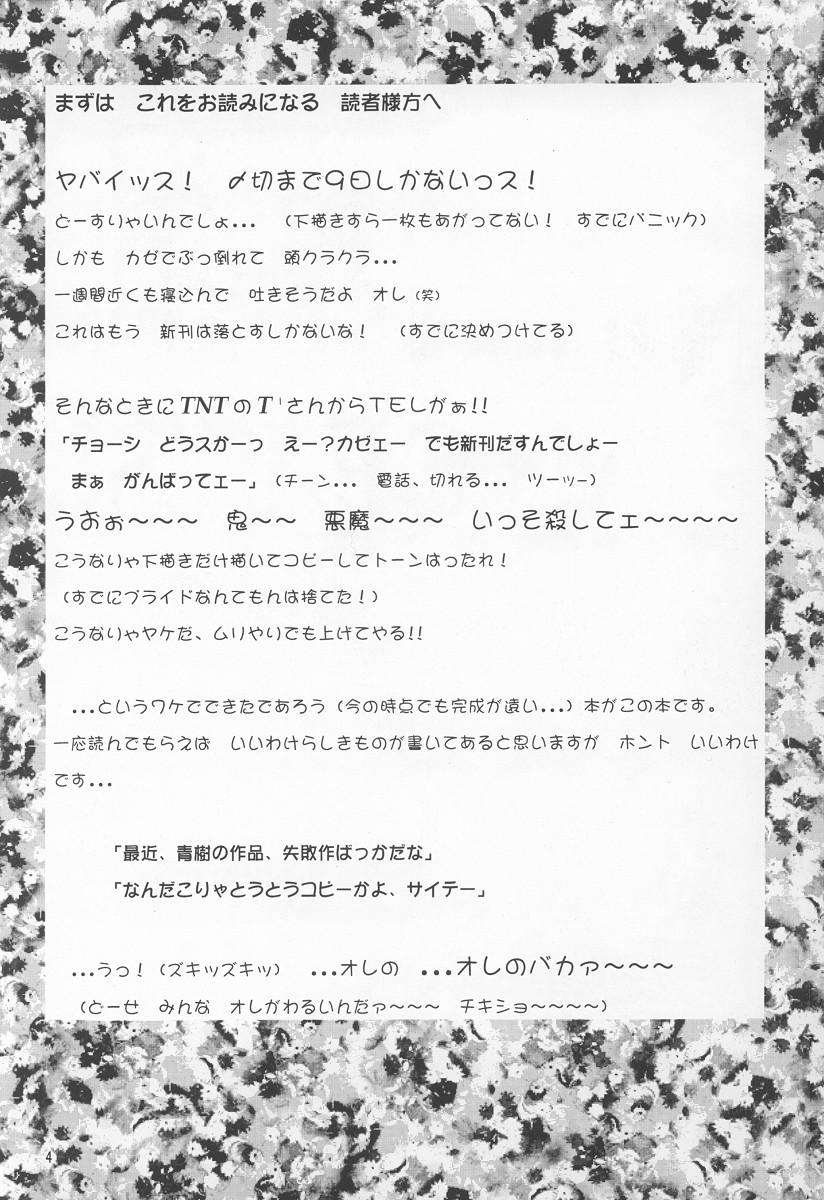 まずは　これをお読みになる　読者様方へ
ヤバイッス！　〆切まで9日しかないっス！
どーすりゃいんでしょ…　（下描きすら一枚もあがってない！　すでにパニック）
しかも　カゼでぶっ倒れて　頭クラクラ…
一週間近くも寝込んで　吐きそうだよ　オレ（笑）
これはもう　新刊は落とすしかないな！　（すでに決めつけてる）
そんなときにTNTのT'さんからTELがぁ!!
「チョーシ　どうスかーっ　えー？カゼェー　でも新刊だすんでしょー
まぁ　がんばってェー」（チーン…　電話、切れる…　ツーッー）
うおぉ〜〜〜　鬼〜〜　悪魔〜〜〜　いっそ殺してェ〜〜〜〜
こうなりゃ下描きだけ描いてコピーしてトーンはったれ！
（すでにプライドなんてもんは捨てた！）
こうなりゃヤケだ、ムリやりでも上げてやる!!
…というワケでできたであろう（今の時点でも完成が遠い…）本がこの本です。
一応読んでもらえば　いいわけらしきものが書いてあると思いますが　ホント　いいわけ
です…
「最近、青樹の作品、失敗作ばっかだな」
「なんだこりゃとうとうコピーかよ、サイテー」
…うっ！（ズキッズキッ）　…オレの　…オレのバカァ〜〜〜
（どーせ　みんな　オレがわるいんだァ〜〜〜　チキショ〜〜〜〜）
4